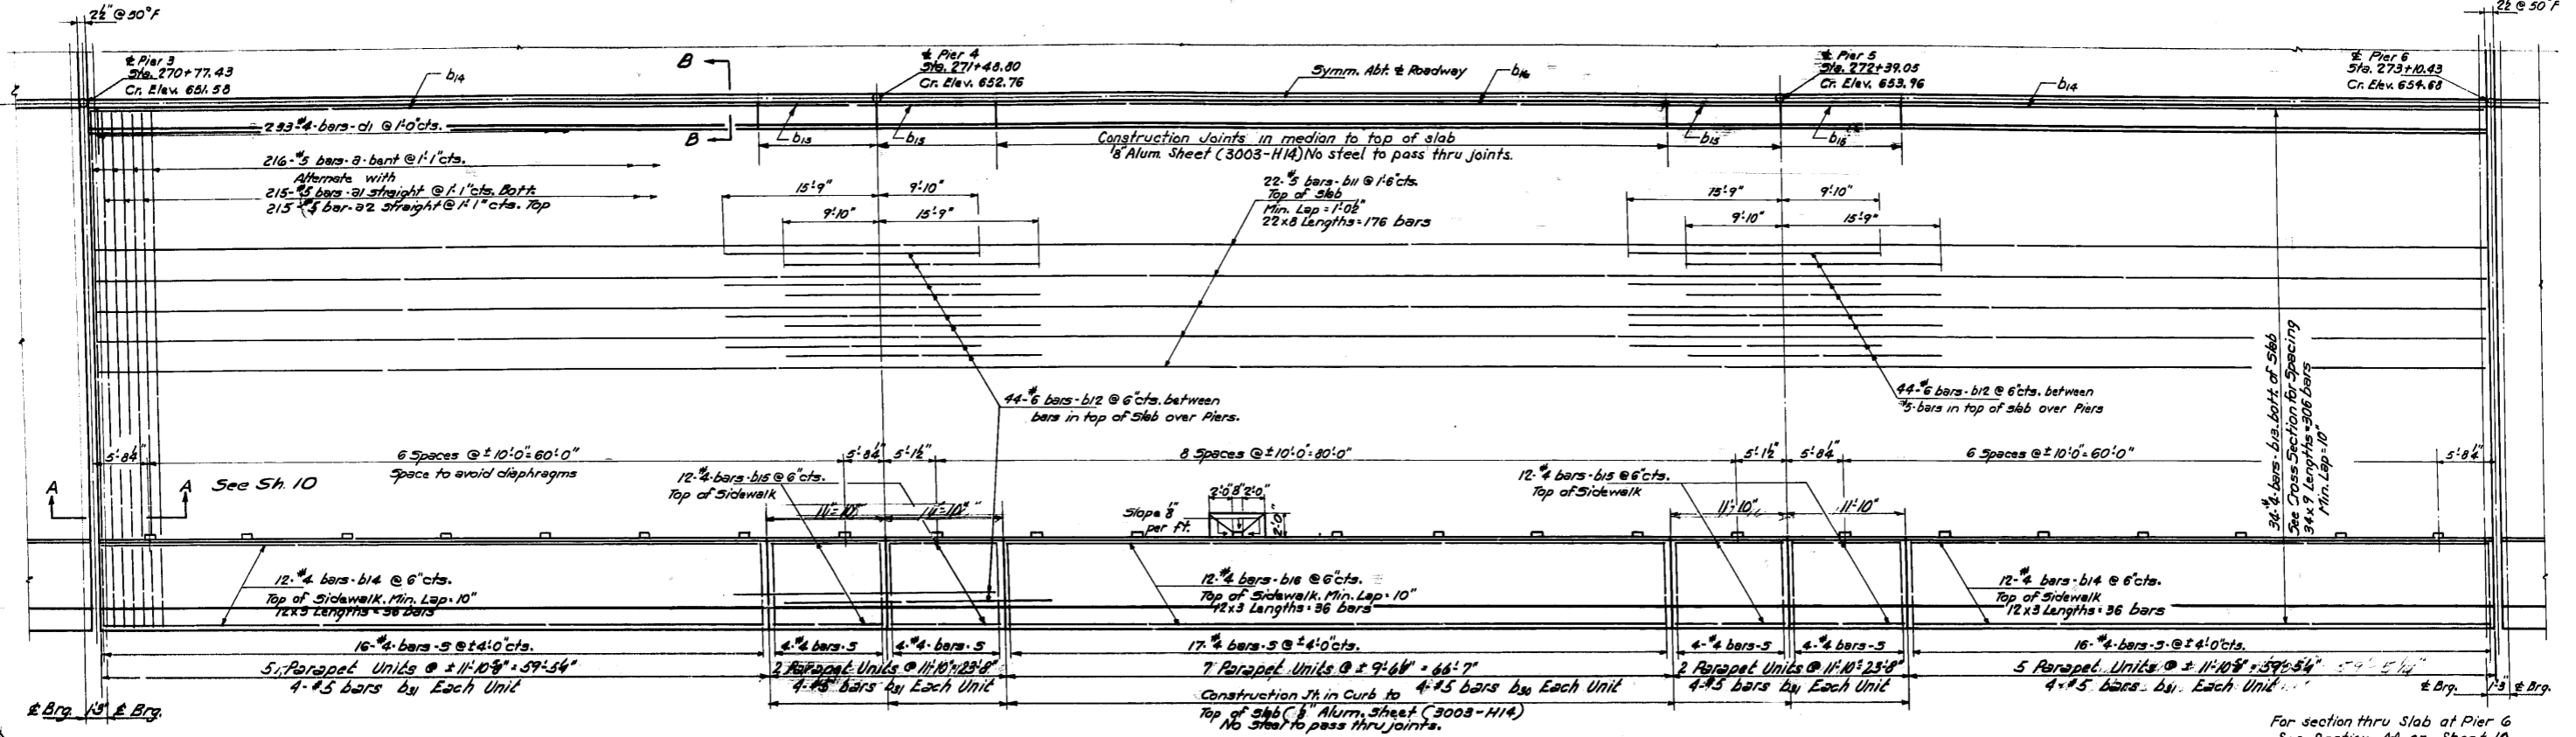 2½" @ 50° F
2½ @ 50° F
℄ Pier 3
Sta. 270+77.43
Cr. Elev. 651.58
b14
B
B
℄ Pier 4
Sta. 271+48.80
Cr. Elev. 652.76
Symm. Abt. ℄ Roadway
b16
℄ Pier 5
Sta. 272+39.05
Cr. Elev. 653.96
b14
℄ Pier 6
Sta. 273+10.43
Cr. Elev. 654.68
233-#4-bars-d1 @ 1'-0" cts.
b15
b15
Construction Joints in median to top of slab
⅛" Alum. Sheet (3003-H14) No steel to pass thru joints.
b15
b15
216-#5 bars-a-bent @ 1'-1" cts.
Alternate with
215-#5 bars-a1 straight @ 1'-1" cts. Bott.
215-#5 bar-a2 straight @ 1'-1" cts. Top
15'-9"
9'-10"
9'-10"
15'-9"
22-#5 bars-b11 @ 1'-6" cts.
Top of Slab
Min. Lap = 1'-0½"
22x8 Lengths = 176 bars
15'-9"
9'-10"
9'-10"
15'-9"
44-#6 bars-b12 @ 6" cts. between
bars in top of Slab over Piers.
44-#6 bars-b12 @ 6" cts. between
#5-bars in top of slab over Piers
34-#4-bars-b13-bott. of Slab
See Cross Section for Spacing
34 x 9 Lengths = 306 bars
Min. Lap = 10"
5'-8¼"
6 Spaces @ ± 10'-0" = 60'-0"
Space to avoid diaphragms
5'-8¼"
5'-1½"
8 Spaces @ ± 10'-0" = 80'-0"
5'-1½"
5'-8¼"
6 Spaces @ ± 10'-0" = 60'-0"
5'-8¼"
A
A
See Sh. 10
12-#4-bars-b15 @ 6" cts.
Top of Sidewalk
11'-10"
11'-10"
Slope ⅛"
per ft.
2'-0" 8" 2'-0"
2'-0"
12-#4 bars-b15 @ 6" cts.
Top of Sidewalk
11'-10"
11'-10"
12-#4 bars-b14 @ 6" cts.
Top of Sidewalk. Min. Lap = 10"
12x3 Lengths = 36 bars
12-#4 bars-b16 @ 6" cts.
Top of Sidewalk. Min. Lap = 10"
12x3 Lengths = 36 bars
12-#4 bars-b14 @ 6" cts.
Top of Sidewalk
12x3 Lengths = 36 bars
16-#4-bars-s @ ±4'-0" cts.
4-#4 bars-s
4-#4-bars-s
17-#4 bars-s @ ±4'-0" cts.
4-#4 bars-s
4-#4 bars-s
16-#4-bars-s @ ±4'-0" cts.
5 Parapet Units @ ± 11'-10⅝" = 59'-5¼"
2 Parapet Units @ 11'-10" = 23'-8"
7 Parapet Units @ ± 9'-6⅛" = 66'-7"
2 Parapet Units @ 11'-10" = 23'-8"
5 Parapet Units @ ± 11'-10⅝" = 59'-5¼" 59'-5¼"
4-#5 bars b31 Each Unit
4-#5 bars b31 Each Unit
4-#5 bars b30 Each Unit
4-#5 bars b31 Each Unit
4-#5 bars b31 Each Unit
Construction Jt. in Curb to
Top of Slab (⅛" Alum. Sheet (3003-H14)
No Steel to pass thru joints.
℄ Brg. 1'-3" ℄ Brg.
℄ Brg. 1'-3" ℄ Brg.
For section thru Slab at Pier 6
See Section AA on Sheet 10